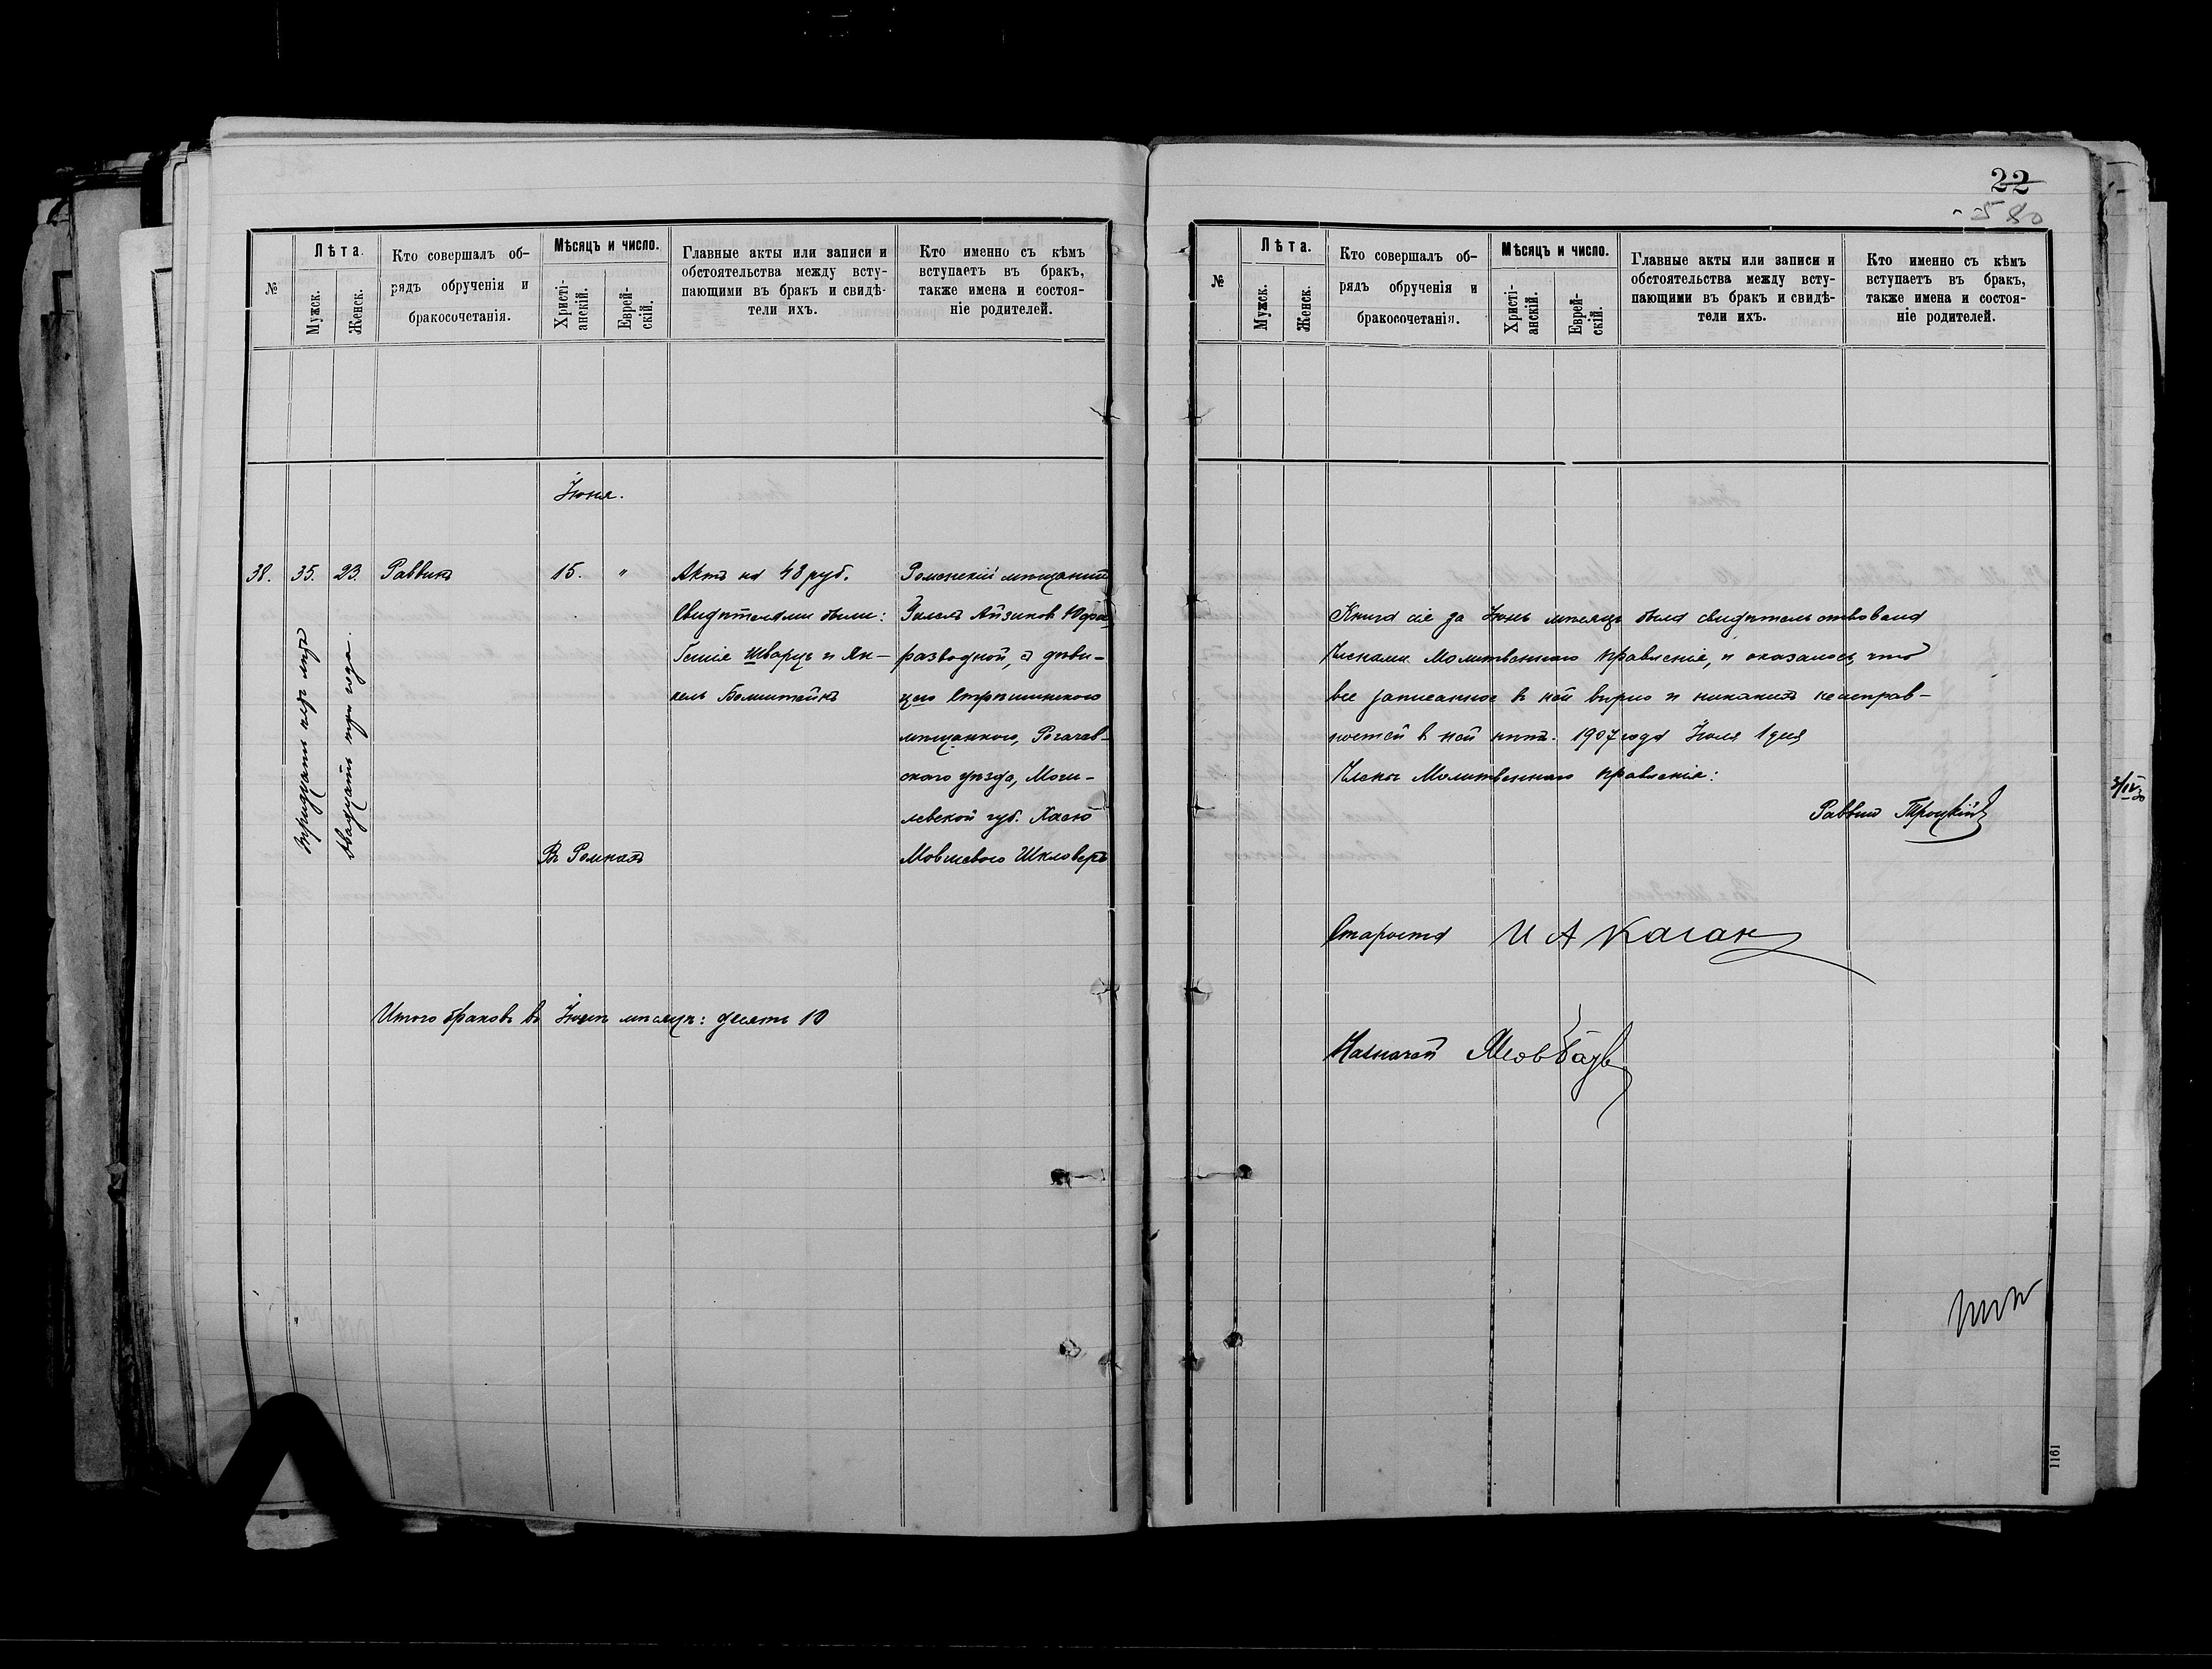 №
Лѣта.
Мужск.
Женск.
Кто совершалъ об-
рядъ обрученія и
бракосочетанія.
Мѣсяцъ и число.
Христі-
анскій.
Еврей-
скій.
Главные акты или записи и
обстоятельства между всту-
пающими въ бракъ и свидѣ-
тели ихъ.
Кто именно съ кѣмъ
вступаетъ въ бракъ,
также имена и состоя-
ніе родителей.
Іюня.
38.
35.
Тридцать пять лѣтъ
23.
двадцать три года.
Раввинъ
15.
"
Въ Ромнахъ
Актъ на 48 руб.
Свидѣтелями были:
Шварцъ и Ян-
кель Бомштейнъ
Роменскій мѣщанинъ
Айзиковъ
разводной, съ дѣви-
цею Стрѣшинскою
мѣщанкою, Рогачев-
скаго уѣзда, Моги-
левской губ. Хасею
Мовшевою Шкловеръ
Итого браковъ въ Іюнѣ мѣсяцѣ: десять 10
22
580
№
Лѣта.
Мужск.
Женск.
Кто совершалъ об-
рядъ обрученія и
бракосочетанія.
Мѣсяцъ и число.
Христі-
анскій.
Еврей-
скій.
Главные акты или записи и
обстоятельства между всту-
пающими въ бракъ и свидѣ-
тели ихъ.
Кто именно съ кѣмъ
вступаетъ въ бракъ,
также имена и состоя-
ніе родителей.
Книга сія за Іюнь мѣсяцъ была свидѣтельствована
Членами Молитвеннаго правленія, и оказалось, что
все записанное в ней вѣрно и никакихъ неисправ-
ностей в ней нѣтъ. 1907 года Іюля 1 дня
Члены Молитвеннаго правленія:
Раввинъ Троцкій
Староста И А Каган
Казначей
1161